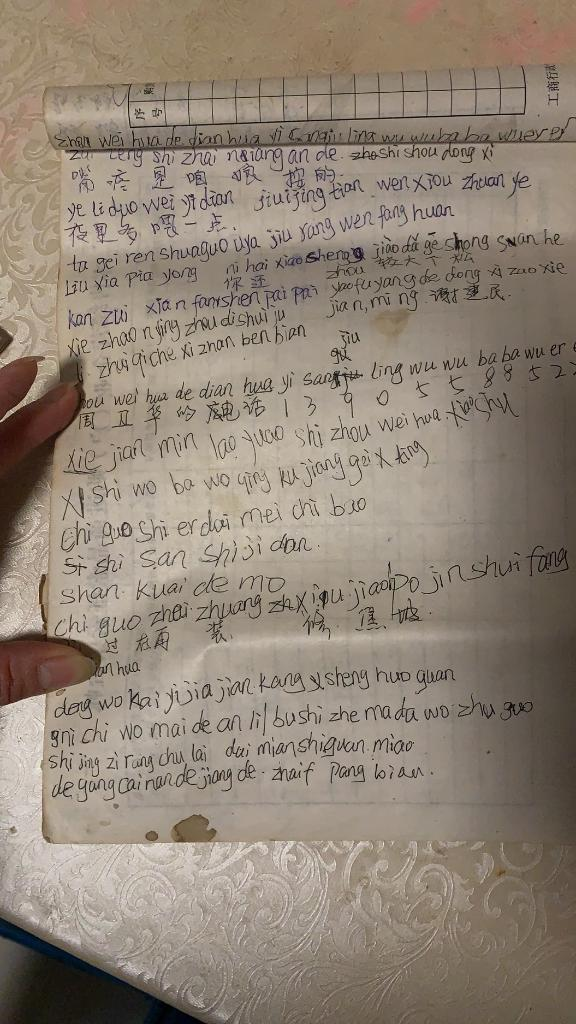 序号
工商行政
zhou wei hua de dian hua yi sanjiu ling wu wu ba ba wu er er
zai ceng shi zhai nqiang an de zhe shi shou dong xi
嘴 疼 是 咱 娘 控的
ye li duo wei yi dian jiu jing tian wen xiou zhuan ye
夜里多喂一点
ta gei ren shuaguo uya jiu rang wen fang huan
Liu xia pia yong ni hai xiao sheng jiao dà gē shong suan he
你还 zhou 较大个松
kan zui xian fan shen pai pai yao fu yang de dong xi zao xie
xie zhao n jing zhou di shui ju jian, ming 谢建民
zhui qi che xi zhan ben bian jiu
gu
hou wei hua de dian hua yi san ling wu wu ba ba wu er
周卫华的电话 1 3 9 0 5 5 8 8 5 2 2
xie jian min lao yuao shi zhou wei hua xiao shu
XI shi wo ba wo qing ku jiang gei X ting
chi guo shi er dai mei chi bao
si shi san shi ji dan.
shan kuai de mo
chi guo zhai zhuang xiu jiao po jin shui fang
过在再 装 修 焦 坡
an hua
dong wo kai yi jia jian kang y sheng huo guan
gni chi wo mai de an li bu shi zhe ma da wo zhu guo
shi jing zi rang chu lai dai mian shi guan miao
de gang cai nan de jiang de zhaif pang bian.